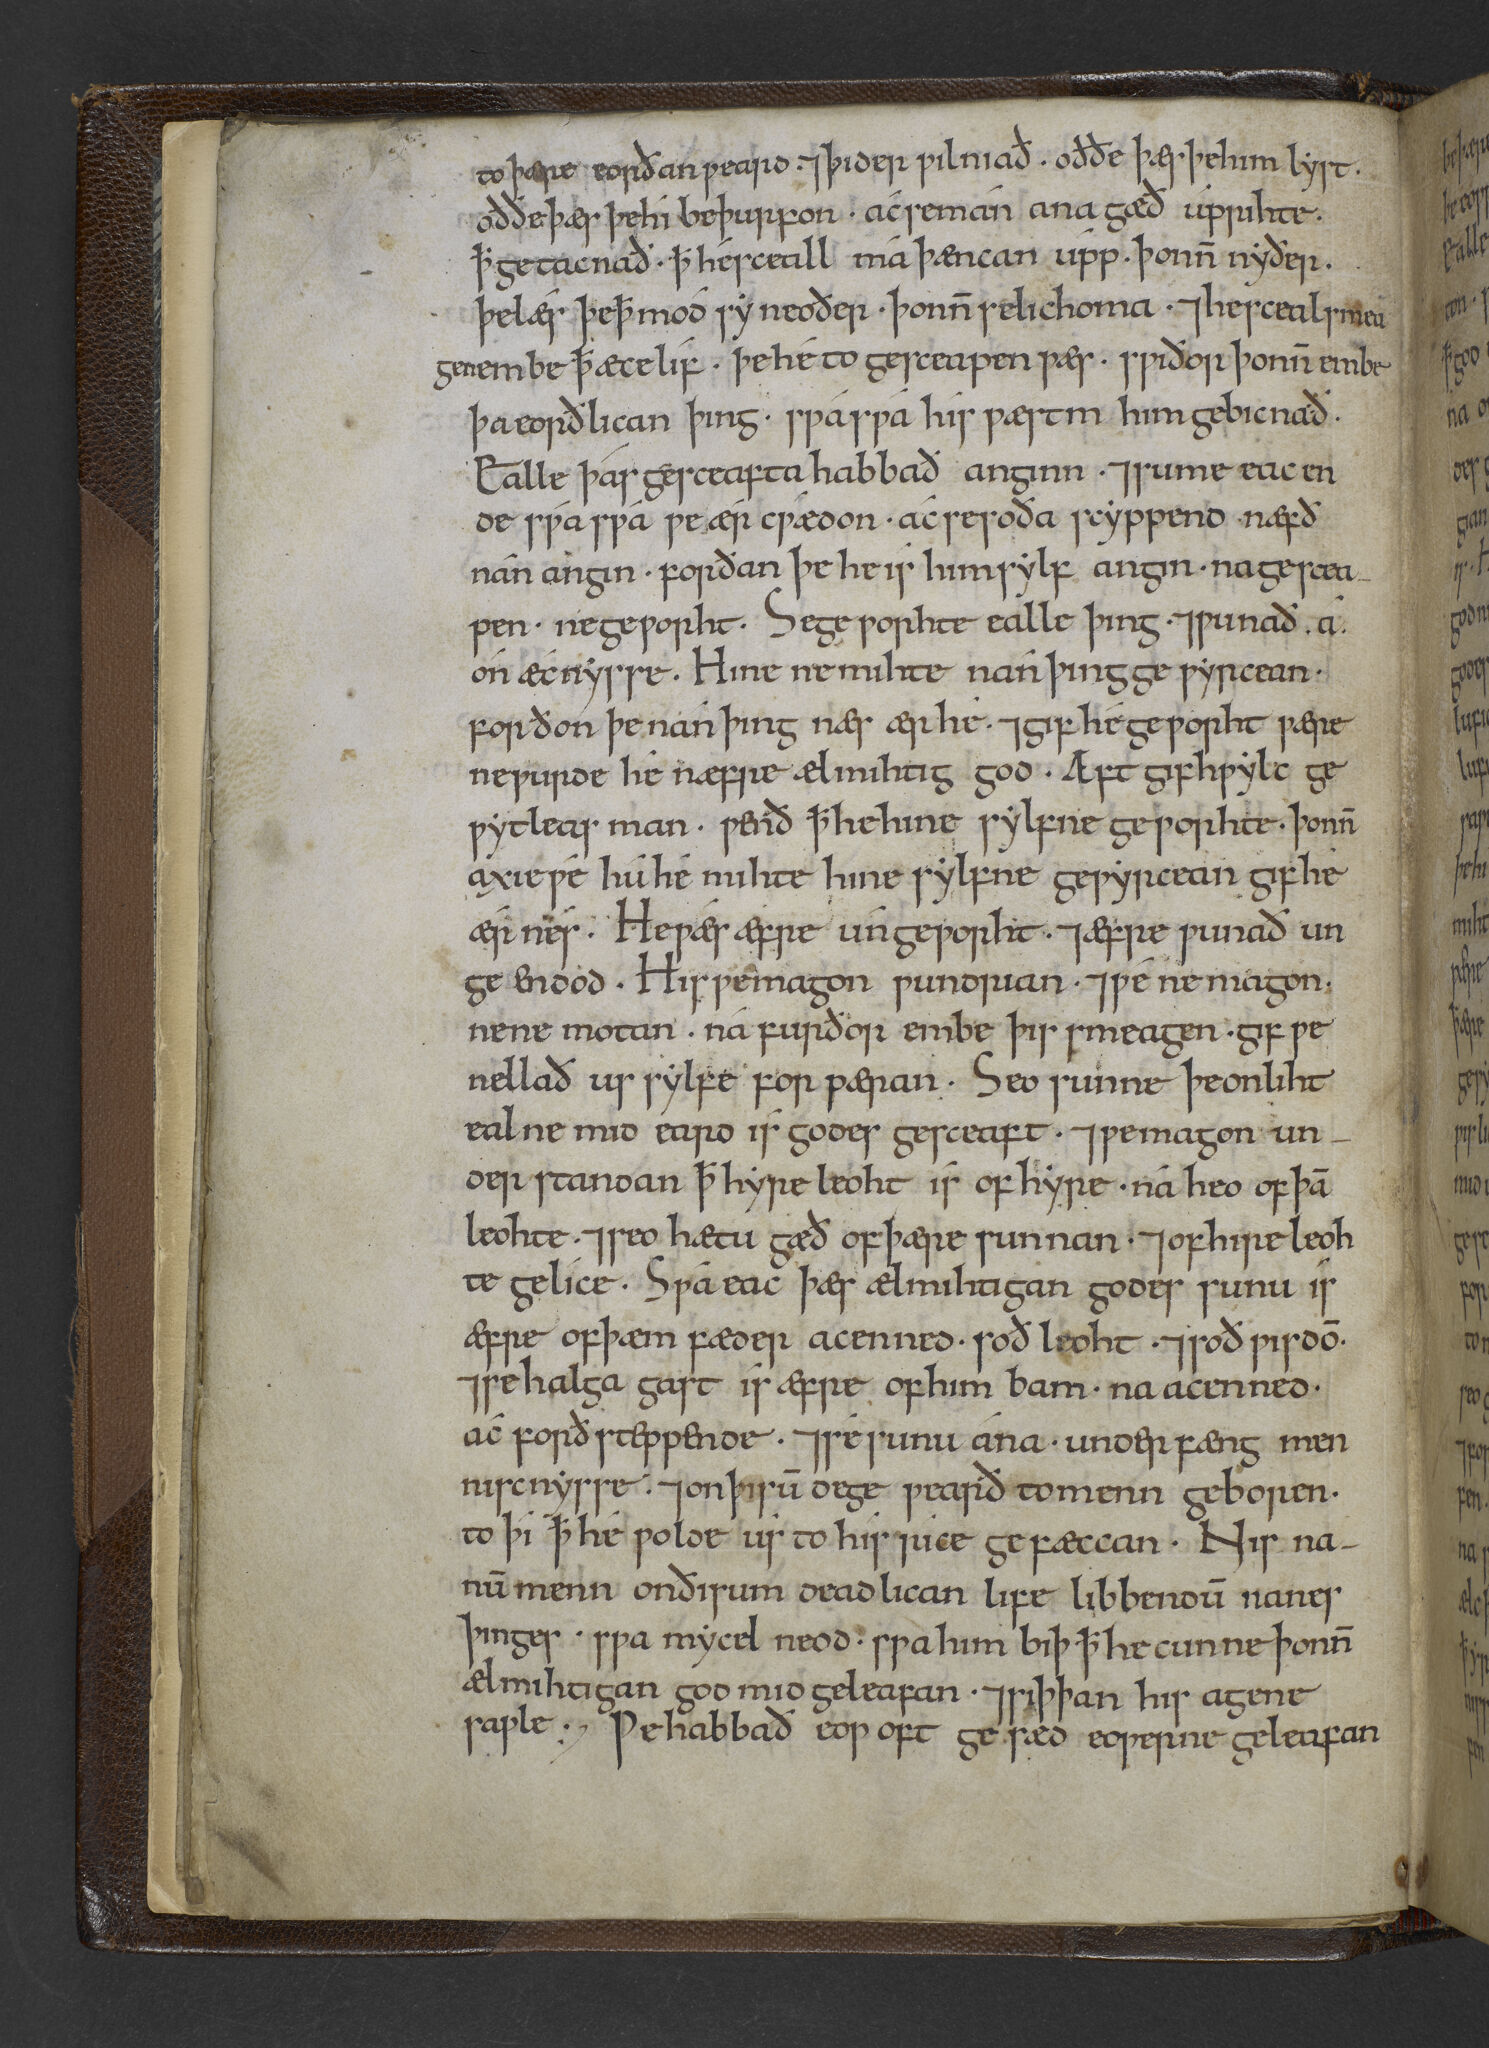 to þære eorðan ƿeard · ⁊ þider ƿilniað · oððe þæs þe him lyst ·
oððe þæs þe hí beþurfon · ác se mán ana gæð úprihte ·
ꝥ getacnað · ꝥ hé sceall má þæncan úpp · þonn̄ nyðer ·
þelǽs þe ꝥ mód sý neoðer · þonn̄ se lichoma · ⁊ hé sceal smeá
gen embe ꝥ æce líf · þe hé to gesceapen ƿæs · sƿiðor þonn̄ embe
þa eorðlican þing · sƿá sƿá his ƿæstm him gebicnað ·
Ealle þás gesceafta habbað anginn · ⁊ sume eac en
de sƿá sƿá ƿe ǽr cƿædon · ác se soða scyppend næfð
nán angin · forðan þe he is him sylf angin · na gescea-
pen · ne geƿorht · Se geƿorhte ealle þing · ⁊ ƿunað · á ·
ón æcnysse · Hine ne mihte nán þing geƿyrcean ·
forðon þe nán þing næs ær hé · ⁊ gif hé geƿorht ƿære
ne ƿurde hé næfre ælmihtig god · Æft gif hƿylc ge
ƿytleas man · ƿenð ꝥ he hine sylfne geƿorhte · þonn̄
axie ƿé hú hé mihte hine sylfne geƿyrcean gif hé
ǽr nés · He ƿǽs æfre úngeƿorht · ⁊ æfre ƿunað un
ge endod · His ƿe magon ƿundrian · ⁊ ƿé ne magon ·
nene motan · ná furðor embe þis smeagen · gif ƿe
nellað us sylfe forƿæran · Seo sunne þe onliht
ealne mid eard is godes gesceaft · ⁊ ƿe magon un-
der standan ꝥ hyre leoht is of hyre · ná heo of þā
leohte · ⁊ seo hætu gæð of þære sunnan · ⁊ of hire leoh
te gelice · Sƿá eac þæs ælmihtigan godes sunu is
æfre of þæm fæder acenned · soð leoht · ⁊ soð ƿisdō ·
⁊ se halga gast is æfre of him bam · na acenned ·
ác forð stæppende · ⁊ sé sunu ána · underfæng men
niscnysse · ⁊ on þisū dege ƿearð to menn geboren ·
to þi ꝥ hé ƿolde us to his rice gefæccan · Nis na-
nū menn onðisum deadlican life libbendū nanes
þinges · sƿa mycel neod · sƿa him biþ ꝥ he cunne þonn̄
ælmihtigan god mid geleafan · ⁊ siþþan his agene
saƿle · Ƿe habbað eoƿ oft ge sæd eoƿerne geleafan